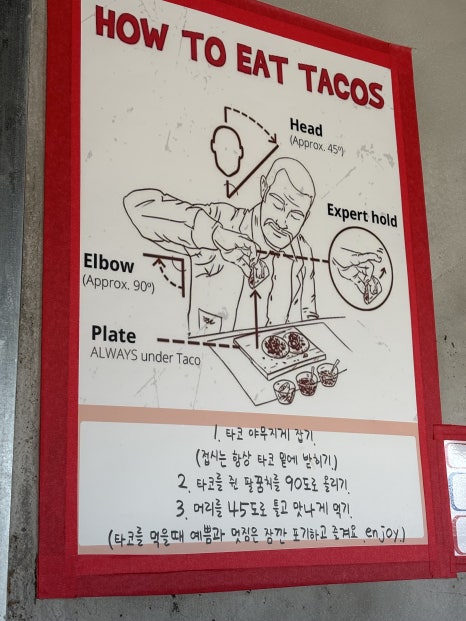 HOW TO EAT TACOS
Head
(Approx. 45º)
Expert hold
Elbow
(Approx. 90º)
Plate
ALWAYS under Taco
1. 타코 야무지게 잡기.
(접시는 항상 타코 밑에 받히기.)
2. 타코를 쥔 팔꿈치를 90도로 올리기.
3. 머리를 45도로 틀고 맛나게 먹기.
(타코를 먹을때 예쁨과 멋짐은 잠깐 포기하고 즐겨요. enjoy.)